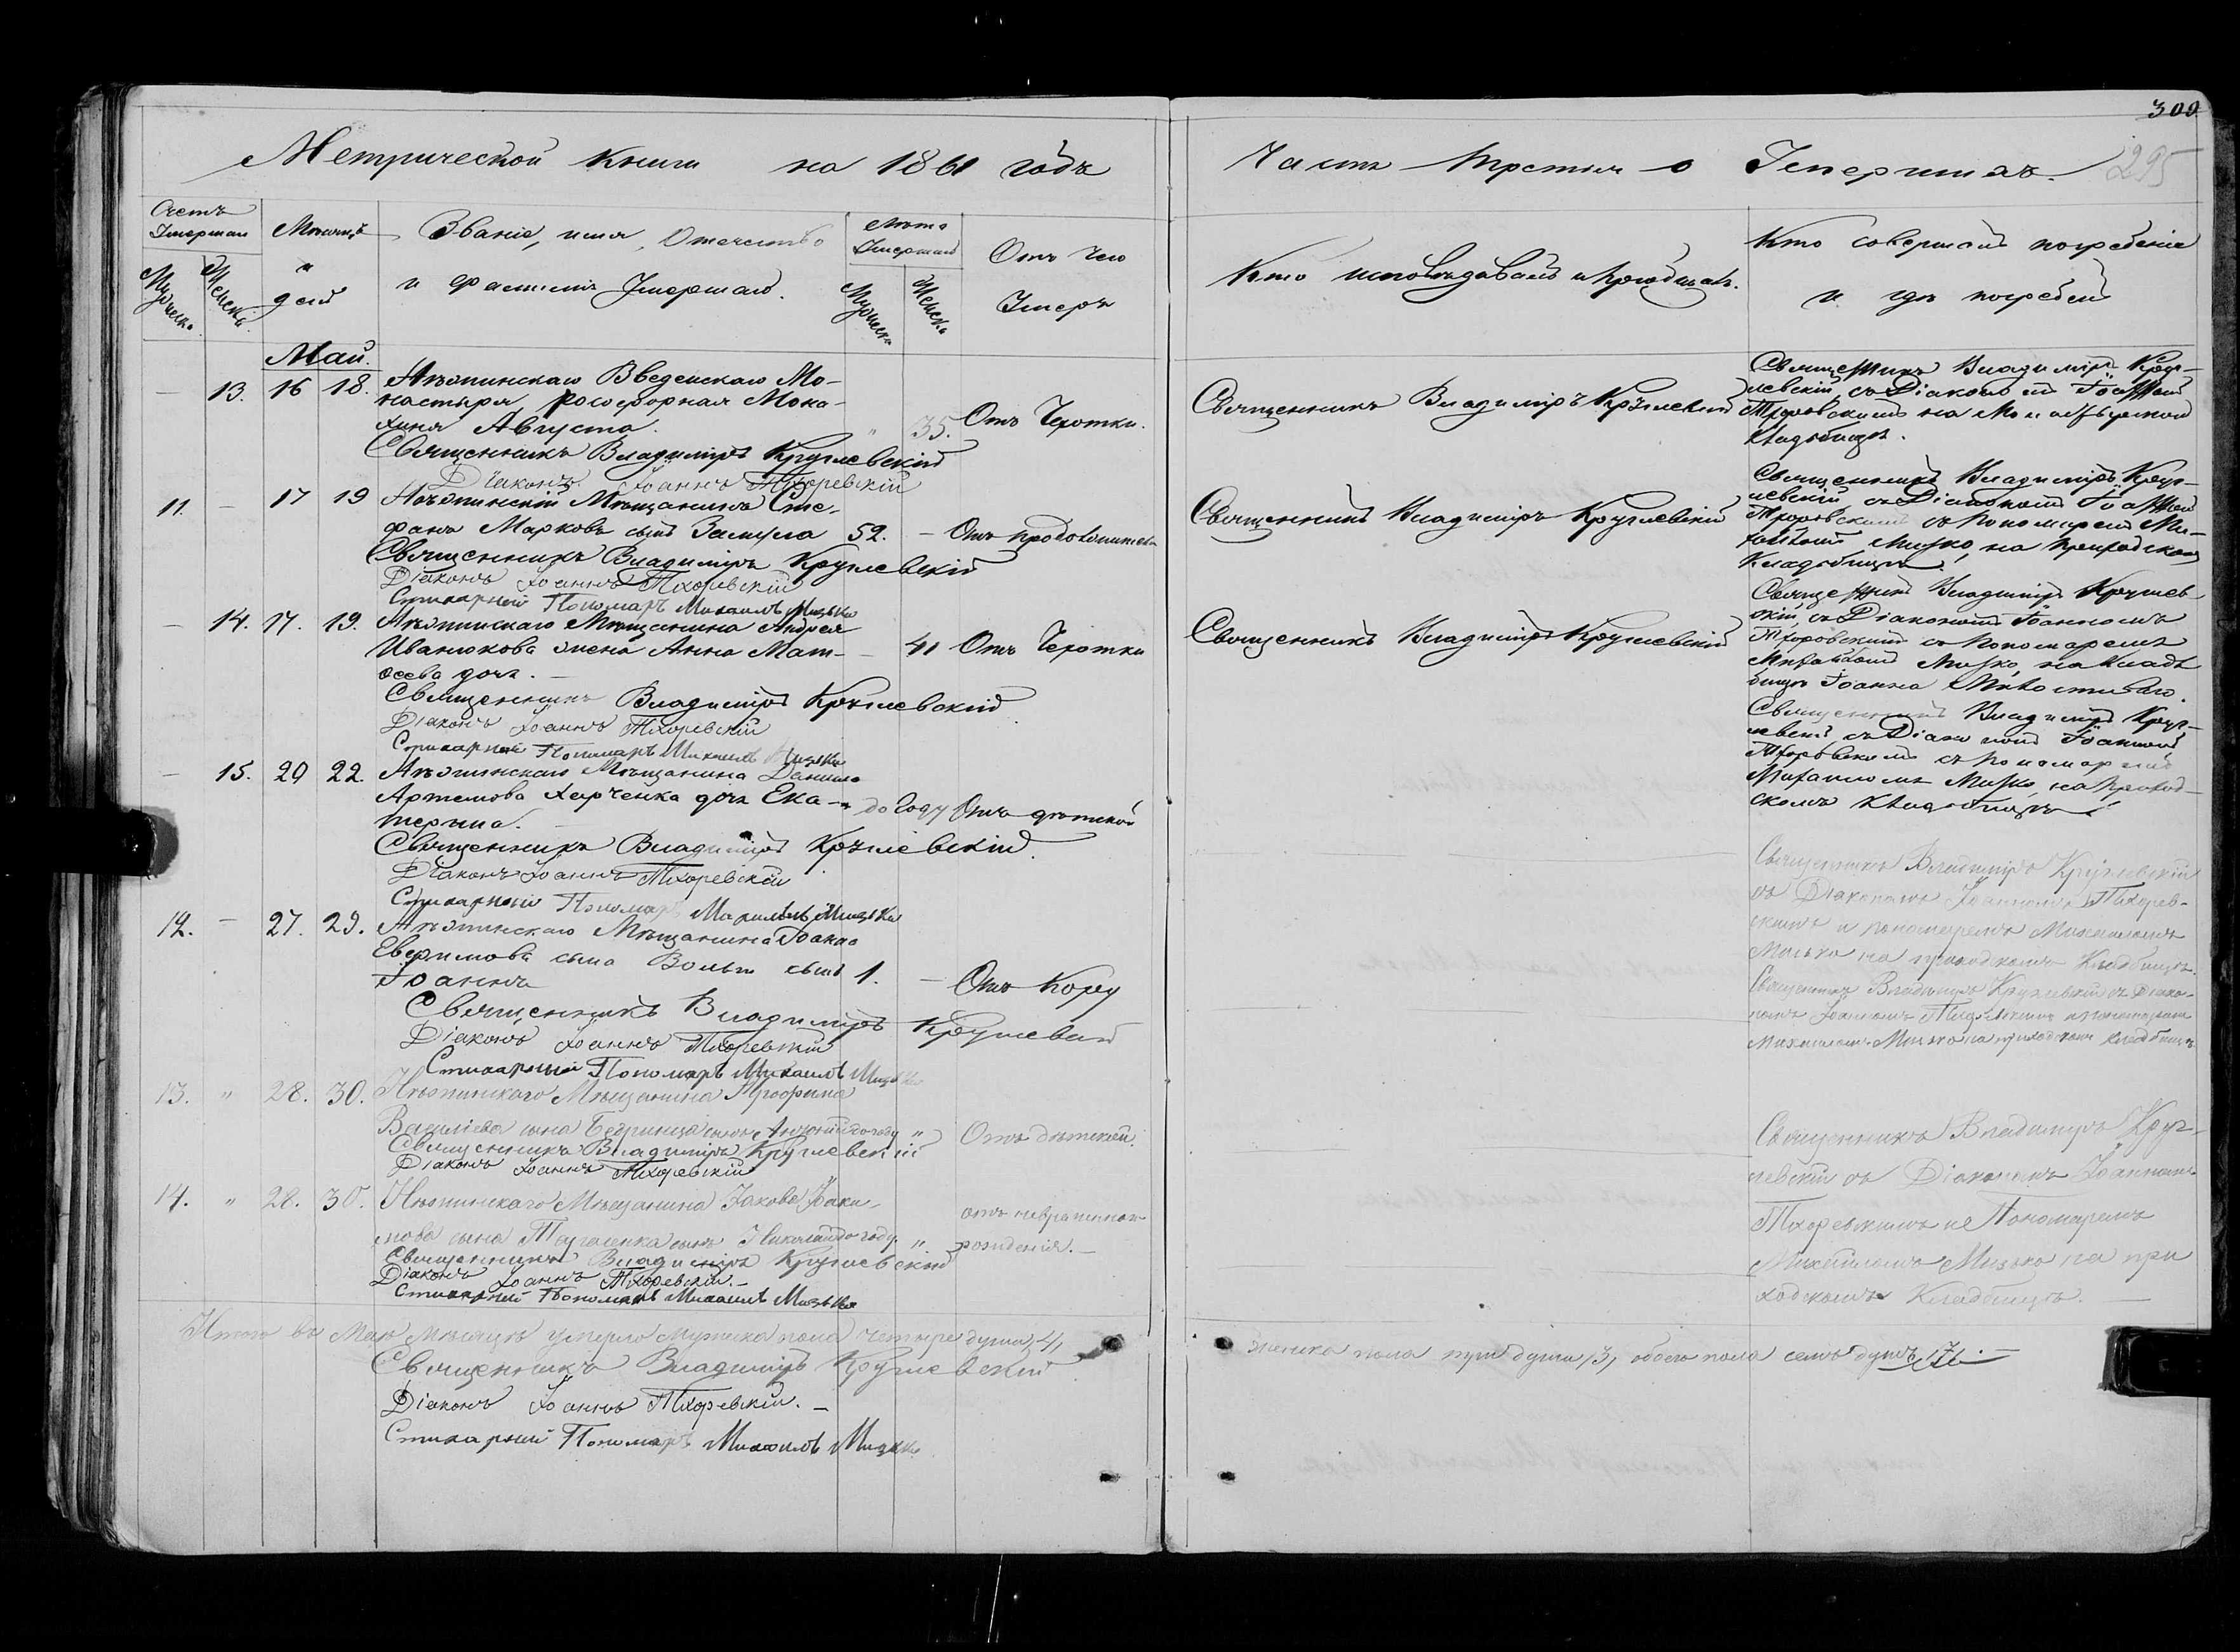 300
295
Метрической Книги на 1861 годъ
Часть Третія о Умершихъ.
Счетъ Умершихъ
Мужеска
Женска
Месяцъ и дни
Званіе, имя, Отечество
и фамилія Умершаго.
Лета Умершаго
Мужеска
Женска
Отъ Чего
Умеръ
Кто исповѣдывалъ и пріобщалъ.
Кто совершалъ погребеніе
и гдѣ погребены
Май.
— 13. 16 18. Нѣжинскаго Введенскаго Мо-
настыря рясофорная Мона-
хиня Августа. " 35. Отъ Чахотки.
Священникъ Владиміръ Круглевскій
Діаконъ Іоаннъ Тхоревскій
Священникъ Владиміръ Круглевскій
Священникъ Владиміръ Круг-
левскій съ Діакономъ Іоанномъ
Тхоревскимъ на Монастырскомъ
Кладбищѣ.
11. — 17 19 Нѣжинскій Мѣщанинъ Сте-
фанъ Марковъ сынъ 52. — Отъ
Священникъ Владиміръ Круглевскій
Діаконъ Іоаннъ Тхоревскій
Стихарный Пономарь Михаилъ Мизько
Священникъ Владиміръ Круглевскій
Священникъ Владиміръ Круг-
левскій съ Діакономъ Іоанномъ
Тхоревскимъ съ Пономаремъ Ми-
хаиломъ Мизько, на Приходскомъ
Кладбищѣ.
— 14. 17. 19. Нѣжинскаго Мѣщанина Андрея
Иванюкова жена Анна Мат-
ѳеева дочь. — — 41 Отъ Чахотки
Священникъ Владиміръ Круглевскій
Діаконъ Іоаннъ Тхоревскій
Стихарный Пономарь Михаилъ Мизько
Священникъ Владиміръ Круглевскій
Священникъ Владиміръ Круглев-
скій, съ Діакономъ Іоанномъ
Тхоревскимъ съ Пономаремъ
Михаиломъ Мизько, на Клад-
бищѣ Іоанна Милостиваго.
— 15. 20 22 Нѣжинскаго Мѣщанина Данила
Артемова Харченка дочь Ека-
терина. — до году Отъ дѣтской
Священникъ Владиміръ Круглевскій.
Діаконъ Іоаннъ Тхоревскій
Стихарный Пономарь Михаилъ Мизько
Священникъ Владиміръ Круг-
левскій съ Діакономъ Іоанномъ
Тхоревскимъ съ Пономаремъ
Михаиломъ Мизко, на Приход-
скомъ Кладбищѣ
12. — 27. 29. Нѣжинскаго Мѣщанина
Евфимова сына сынъ 1. — Отъ Кору
Іоаннъ
Священникъ Владиміръ Круглевскій
Діаконъ Іоаннъ Тхоревскій
Стихарный Пономарь Михаилъ Мизько
Священникъ Владиміръ Круглевскій
съ Діакономъ Іоанномъ Тхорев-
скимъ и пономаремъ Михаиломъ
Мизько на приходскомъ Кладбищѣ.
13. " 28. 30. Нѣжинскаго Мѣщанина Трофима
Василіева сына Бедринца сынъ Антоній до году " Отъ дѣтской.
Священникъ Владиміръ Круглевскій
Діаконъ Іоаннъ Тхоревскій
Священникъ Владиміръ Круглевскій съ Діако-
номъ Іоанномъ Тхоревскимъ и пономаремъ
Михаиломъ Мизько на приходскомъ кладбищѣ
14. " 28. 30. Нѣжинскаго Мѣщанина Іакова Іоаки-
мова сына сынъ Николай до году " отъ
рожденія. —
Священникъ Владиміръ Круглевскій
Діаконъ Іоаннъ Тхоревскій. —
Стихарный Пономарь Михаилъ Мизько
Священникъ Владиміръ Круг-
левскій съ Діакономъ Іоанномъ
Тхоревскимъ и Пономаремъ
Михаиломъ Мизько на при
ходскомъ Кладбищѣ. —
Итого въ Маѣ Мѣсяцѣ умерло мужеска пола четыре души, 4, женска пола три души, 3, обоего пола семь душъ, 7. —
Священникъ Владиміръ Круглевскій
Діаконъ Іоаннъ Тхоревскій. —
Стихарный Пономарь Михаилъ Мизько